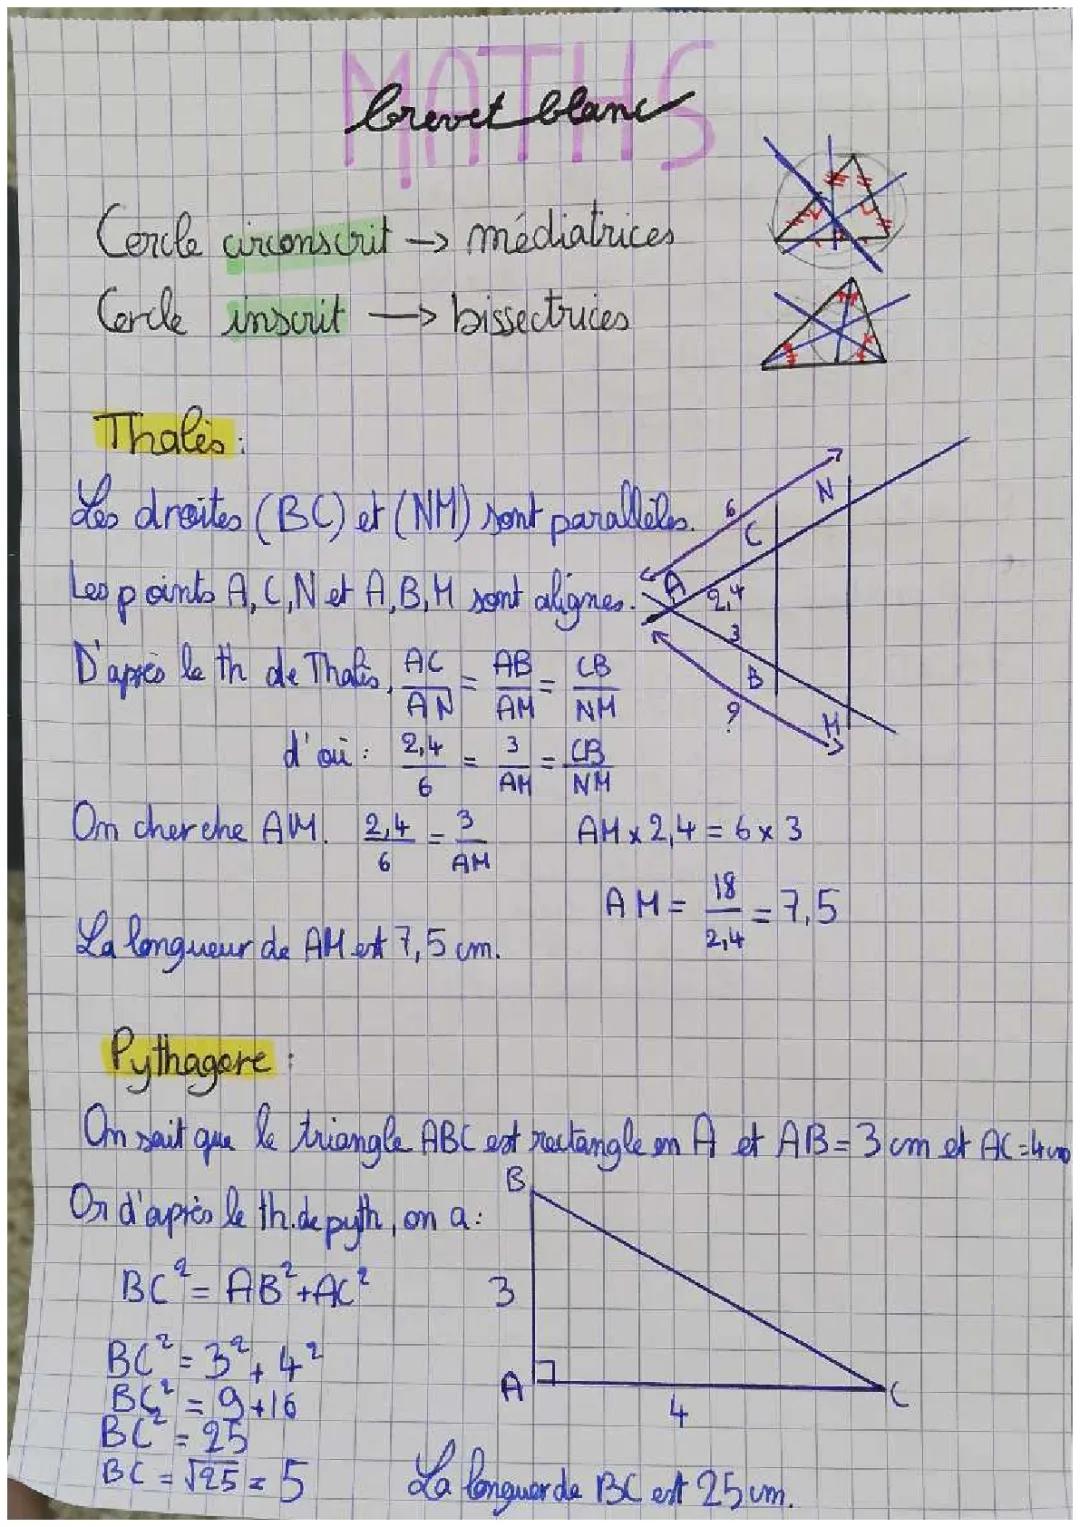 MATHS
brevet blanc
Cercle circonscrit → médiatrices
Cercle inscrit → bissectrices
Thalès :
Les droites (BC) et (NM) sont parallèles.
Les points A, C, N et A, B, M sont alignes.
D'après le th de Thalès, AC/AN = AB/AM = CB/NM
d'où : 2,4/6 = 3/AM = CB/NM
On cherche AM. 2,4/6 = 3/AM AM x 2,4 = 6 x 3
AM = 18/2,4 = 7,5
La longueur de AM est 7,5 cm.
N
6
C
A
2,4
3
B
?
M
Pythagore :
On sait que le triangle ABC est rectangle en A et AB = 3 cm et AC = 4 cm
Or d'après le th. de pyth, on a :
BC² = AB² + AC²
BC² = 3² + 4²
BC² = 9 + 16
BC² = 25
BC = √25 = 5
B
3
A
4
C
La longuer de BC est 25 cm.